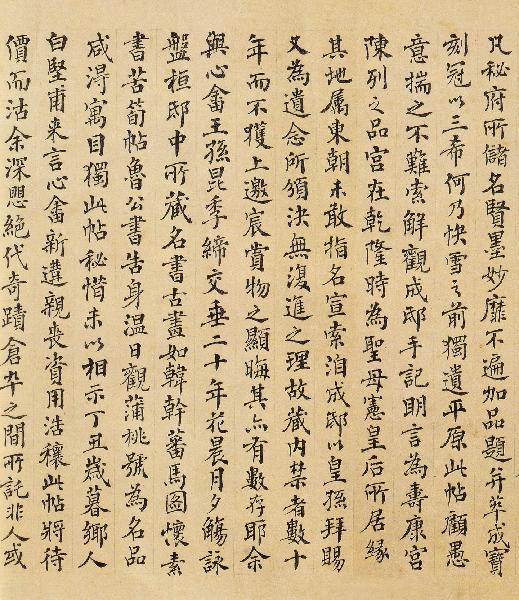 凡秘府所儲名賢墨妙靡不遍加品題并萃成寶
刻冠以三希何乃快雪之前獨遺平原此帖顧愚
意揣之不難索解觀成邸手記明言為壽康宮
陳列之品宮在乾隆時為聖母憲皇后所居緣
其地屬東朝未敢指名宣索洎成邸以皇孫拜賜
又為遺念所頒決無復進之理故藏內禁者數十
年而不獲上邀宸賞物之顯晦其亦有數存耶余
與心畬王孫昆季締交垂二十年花晨月夕觴詠
盤桓邸中所藏名書古畫如韓幹蕃馬圖懷素
書苦筍帖魯公書告身溫日觀蒲桃號為名品
咸得寓目獨此帖秘惜未以相示丁丑歲暮鄉人
白堅甫来言心畬新遘親喪資用浩穰此帖將待
價而沽余深愳絕代奇蹟倉卒之間所託非人或